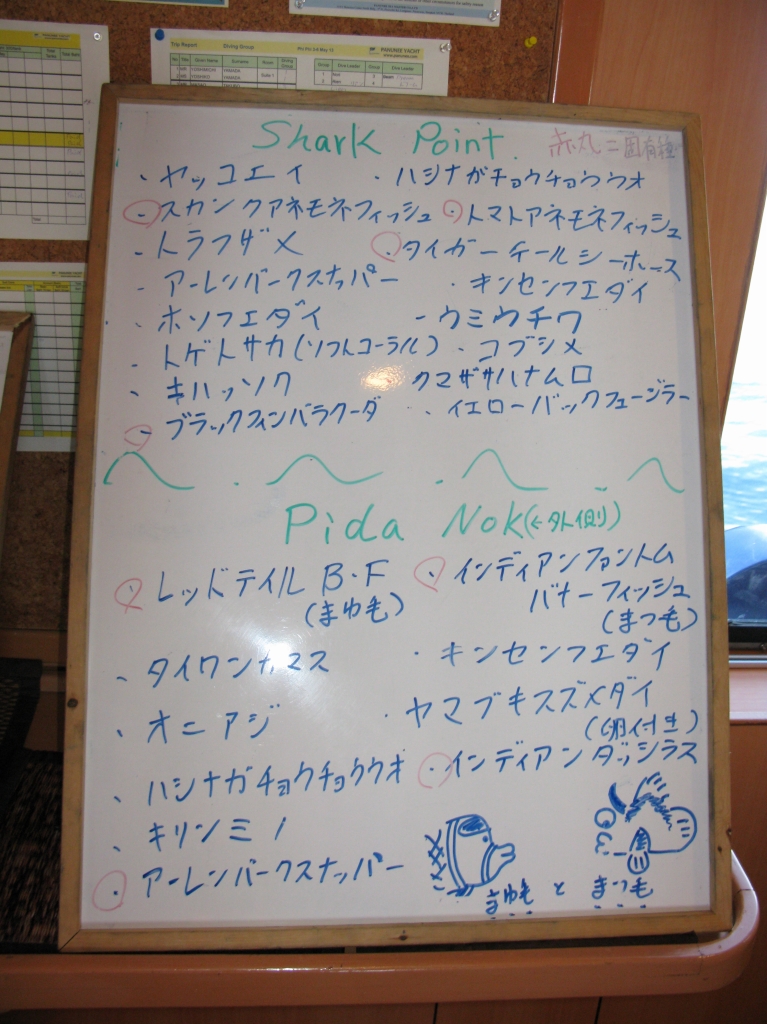 PANUNEE YACHT
Trip Report Diving Group
Shark Point
赤丸=固有種
・ヤッコエイ ・ハシナガチョウチョウウオ
・スカンクアネモネフィッシュ ・トマトアネモネフィッシュ
・トラフザメ ・タイガーテールシーホース
・アーレンバークスナッパー ・キンセンフエダイ
・ホソフエダイ ・ウミウチワ
・トゲトサカ(ソフトコーラル) ・コブシメ
・キハッソク ・クマザサハナムロ
・ブラックフィンバラクーダ ・イエローバックフュージラー
Pida Nok(←外側)
・レッドテイル B.F ・インディアンファントム
(まゆ毛) バナーフィッシュ
(まつ毛)
・タイワンカマス ・キンセンフエダイ
・オニアジ ・ヤマブキスズメダイ
(卵付き)
・ハシナガチョウチョウウオ ・インディアンダッシラス
・キリンミノ
・アーレンバークスナッパー
まゆ毛 と まつ毛